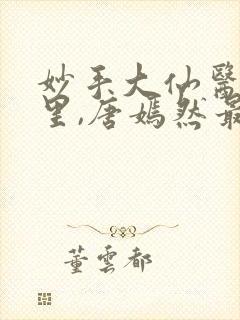 妙手大仙醫
里,唐嫣然最
董雲都